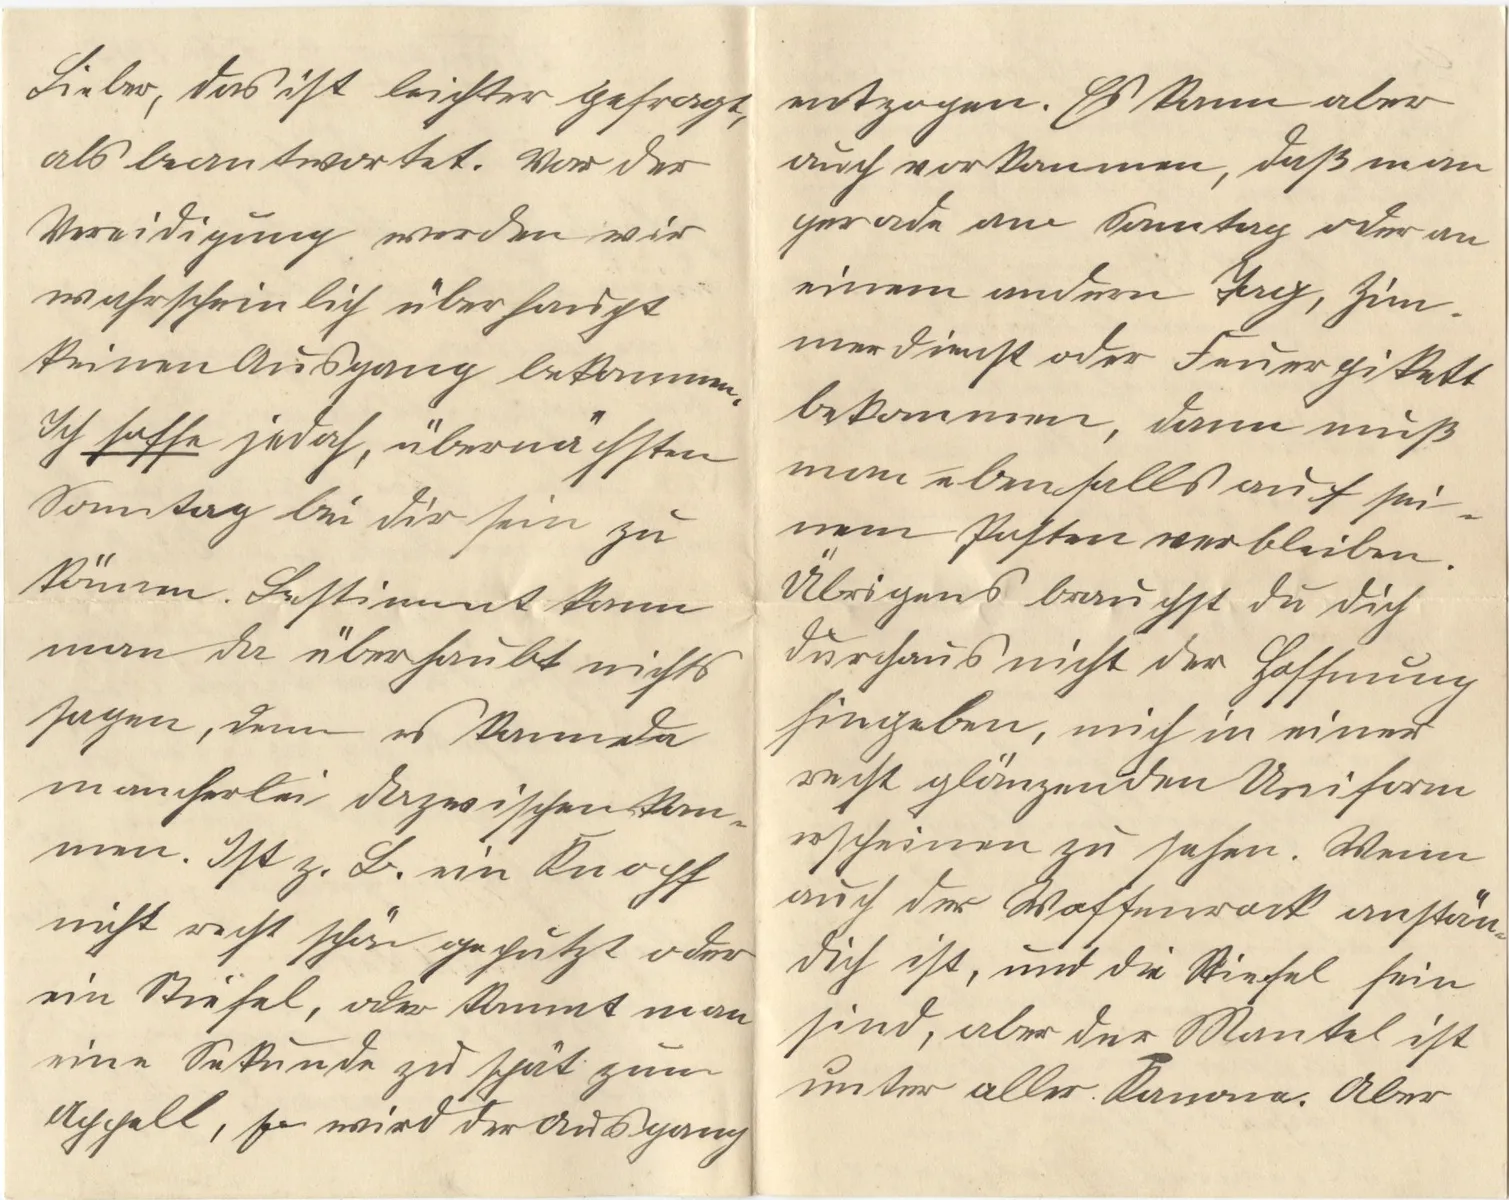 Lieber, das ist leichter gefragt,
als beantwortet. Vor der
Vereidigung werden wir
wahrscheinlich überhaupt
keinen Ausgang bekommen.
Ich hoffe jedoch, übernächsten
Sonntag bei dir sein zu
können. Bestimmt kann
man da überhaubt nichts
sagen, denn es kann da
mancherlei dazwischen kom-
men. Ist z. B. ein Knopf
nicht recht schön geputzt oder
ein Stiefel, oder kommt man
eine Sekunde zu spät zum
Appell, so wird der Ausgang
entzogen. Es kann aber
auch vorkommen, daß man
gerade am Sonntag oder an
einem andern Tag, Zim-
merdienst oder Feuerpikett
bekommen, dann muß
man ebenfalls auf sei-
nem Posten verbleiben.
Übrigens brauchst du dich
durchaus nicht der Hoffnung
hingeben, mich in einer
recht glänzenden Uniform
erscheinen zu sehen. Wenn
auch der Waffenrock anstän-
dich ist, und die Stiefel fein
sind, aber der Mantel ist
unter aller Kanone. Aber